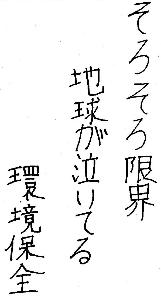 そろそろ限界
地球が泣いてる
環境保全